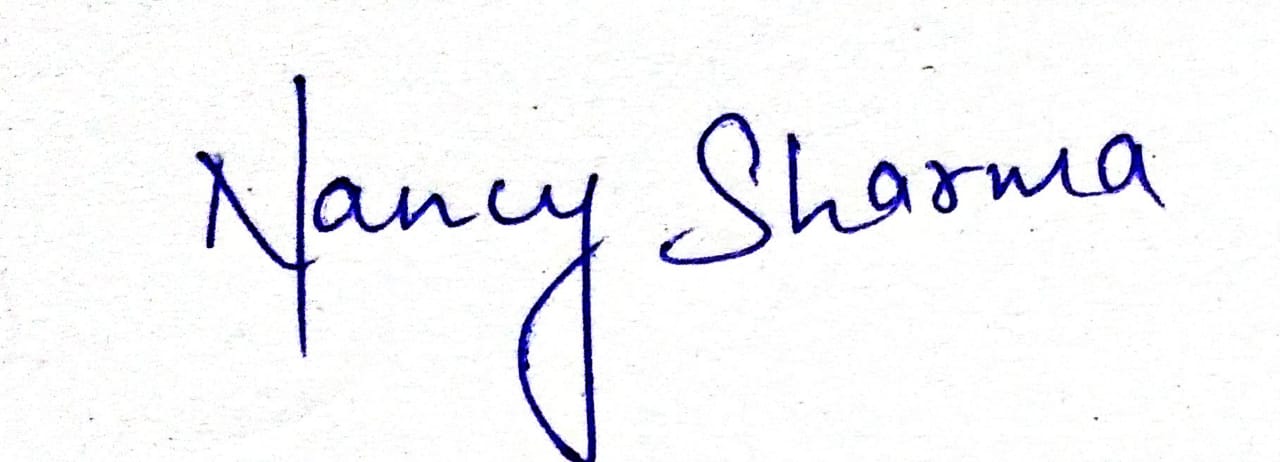 Nancy Sharma